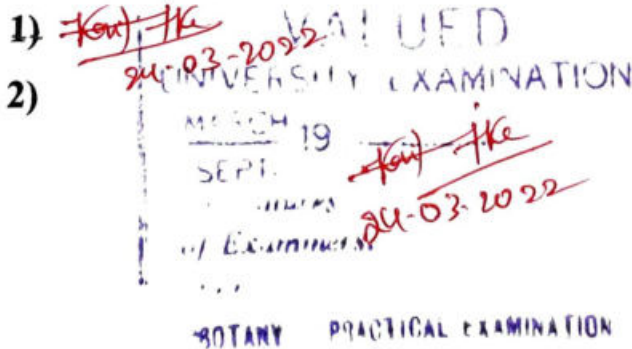 1)
VALUED
24-03-2022
2) UNIVERSITY EXAMINATION
MARCH 19
SEPT.
24-03-2022
of Examiners
BOTANY PRACTICAL EXAMINATION